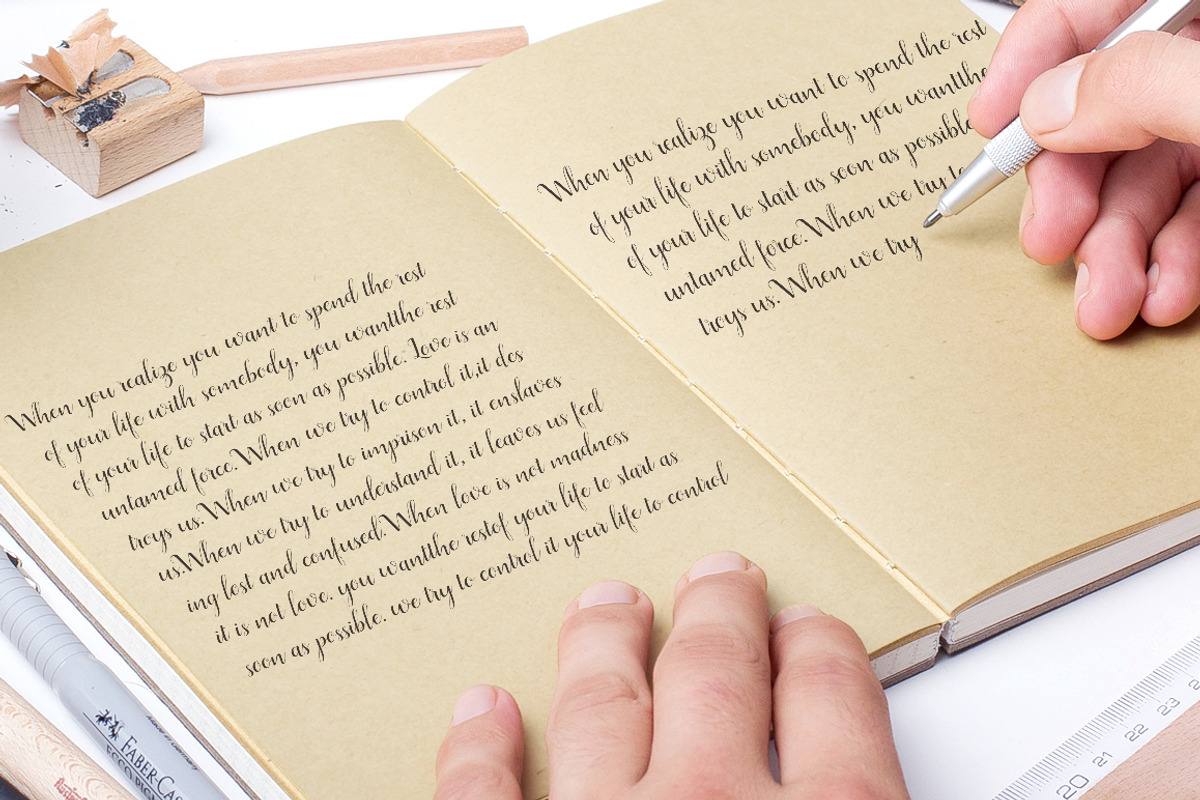 When you realize you want to spend the rest
of your life with somebody, you wantthe rest
of your life to start as soon as possible. Love is an
untamed force.When we try to control it,it des
troys us.When we try to imprison it, it enslaves
us.When we try to understand it, it leaves us feel
ing lost and confused.When love is not madness
it is not love. you wantthe restof your life to start as
soon as possible. we try to control it your life to control
When you realize you want to spend the rest
of your life with somebody, you wantthe
of your life to start as soon as possible
untamed force.When we try to
troys us.When we try
FABER-CAS
ECCO PIG
20 21 22 23